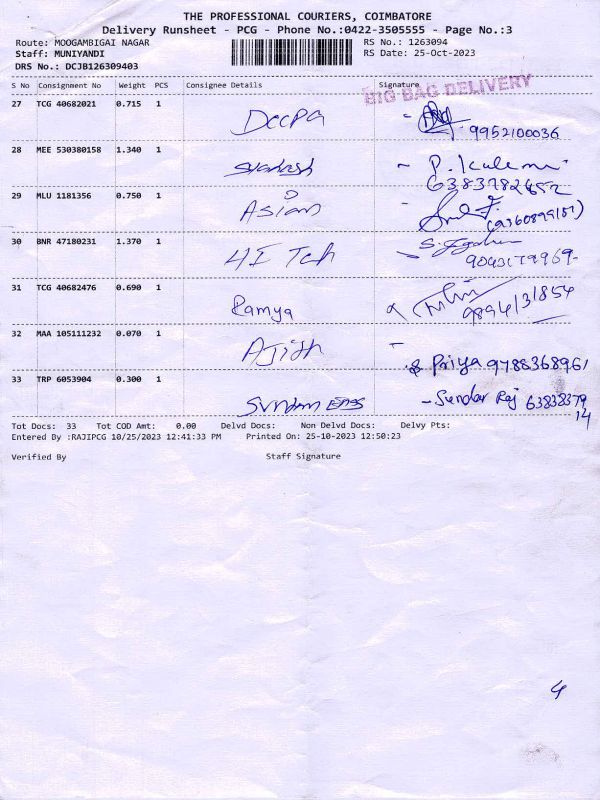 THE PROFESSIONAL COURIERS, COIMBATORE
Delivery Runsheet - PCG - Phone No.:0422-3505555 - Page No.:3
Route: MOOGAMBIGAI NAGAR RS No.: 1263094
Staff: MUNIYANDI RS Date: 25-Oct-2023
DRS No.: DCJB126309403
BIG BAG DELIVERY
S No Consignment No Weight PCS Consignee Details Signature
27 TCG 40682021 0.715 1 Deepa 9952100036
28 MEE 530380158 1.340 1 P.
29 MLU 1181356 0.750 1 Asian
30 BNR 47180231 1.370 1 HI Tch
31 TCG 40682476 0.690 1 Ramya 9894131854
32 MAA 105111232 0.070 1 Ajith Priya 9788368961
33 TRP 6053904 0.300 1 Sundar Raj 63838379
14
Tot Docs: 33 Tot COD Amt: 0.00 Delvd Docs: Non Delvd Docs: Delvy Pts:
Entered By :RAJIPCG 10/25/2023 12:41:33 PM Printed On: 25-10-2023 12:50:23
Verified By Staff Signature
4